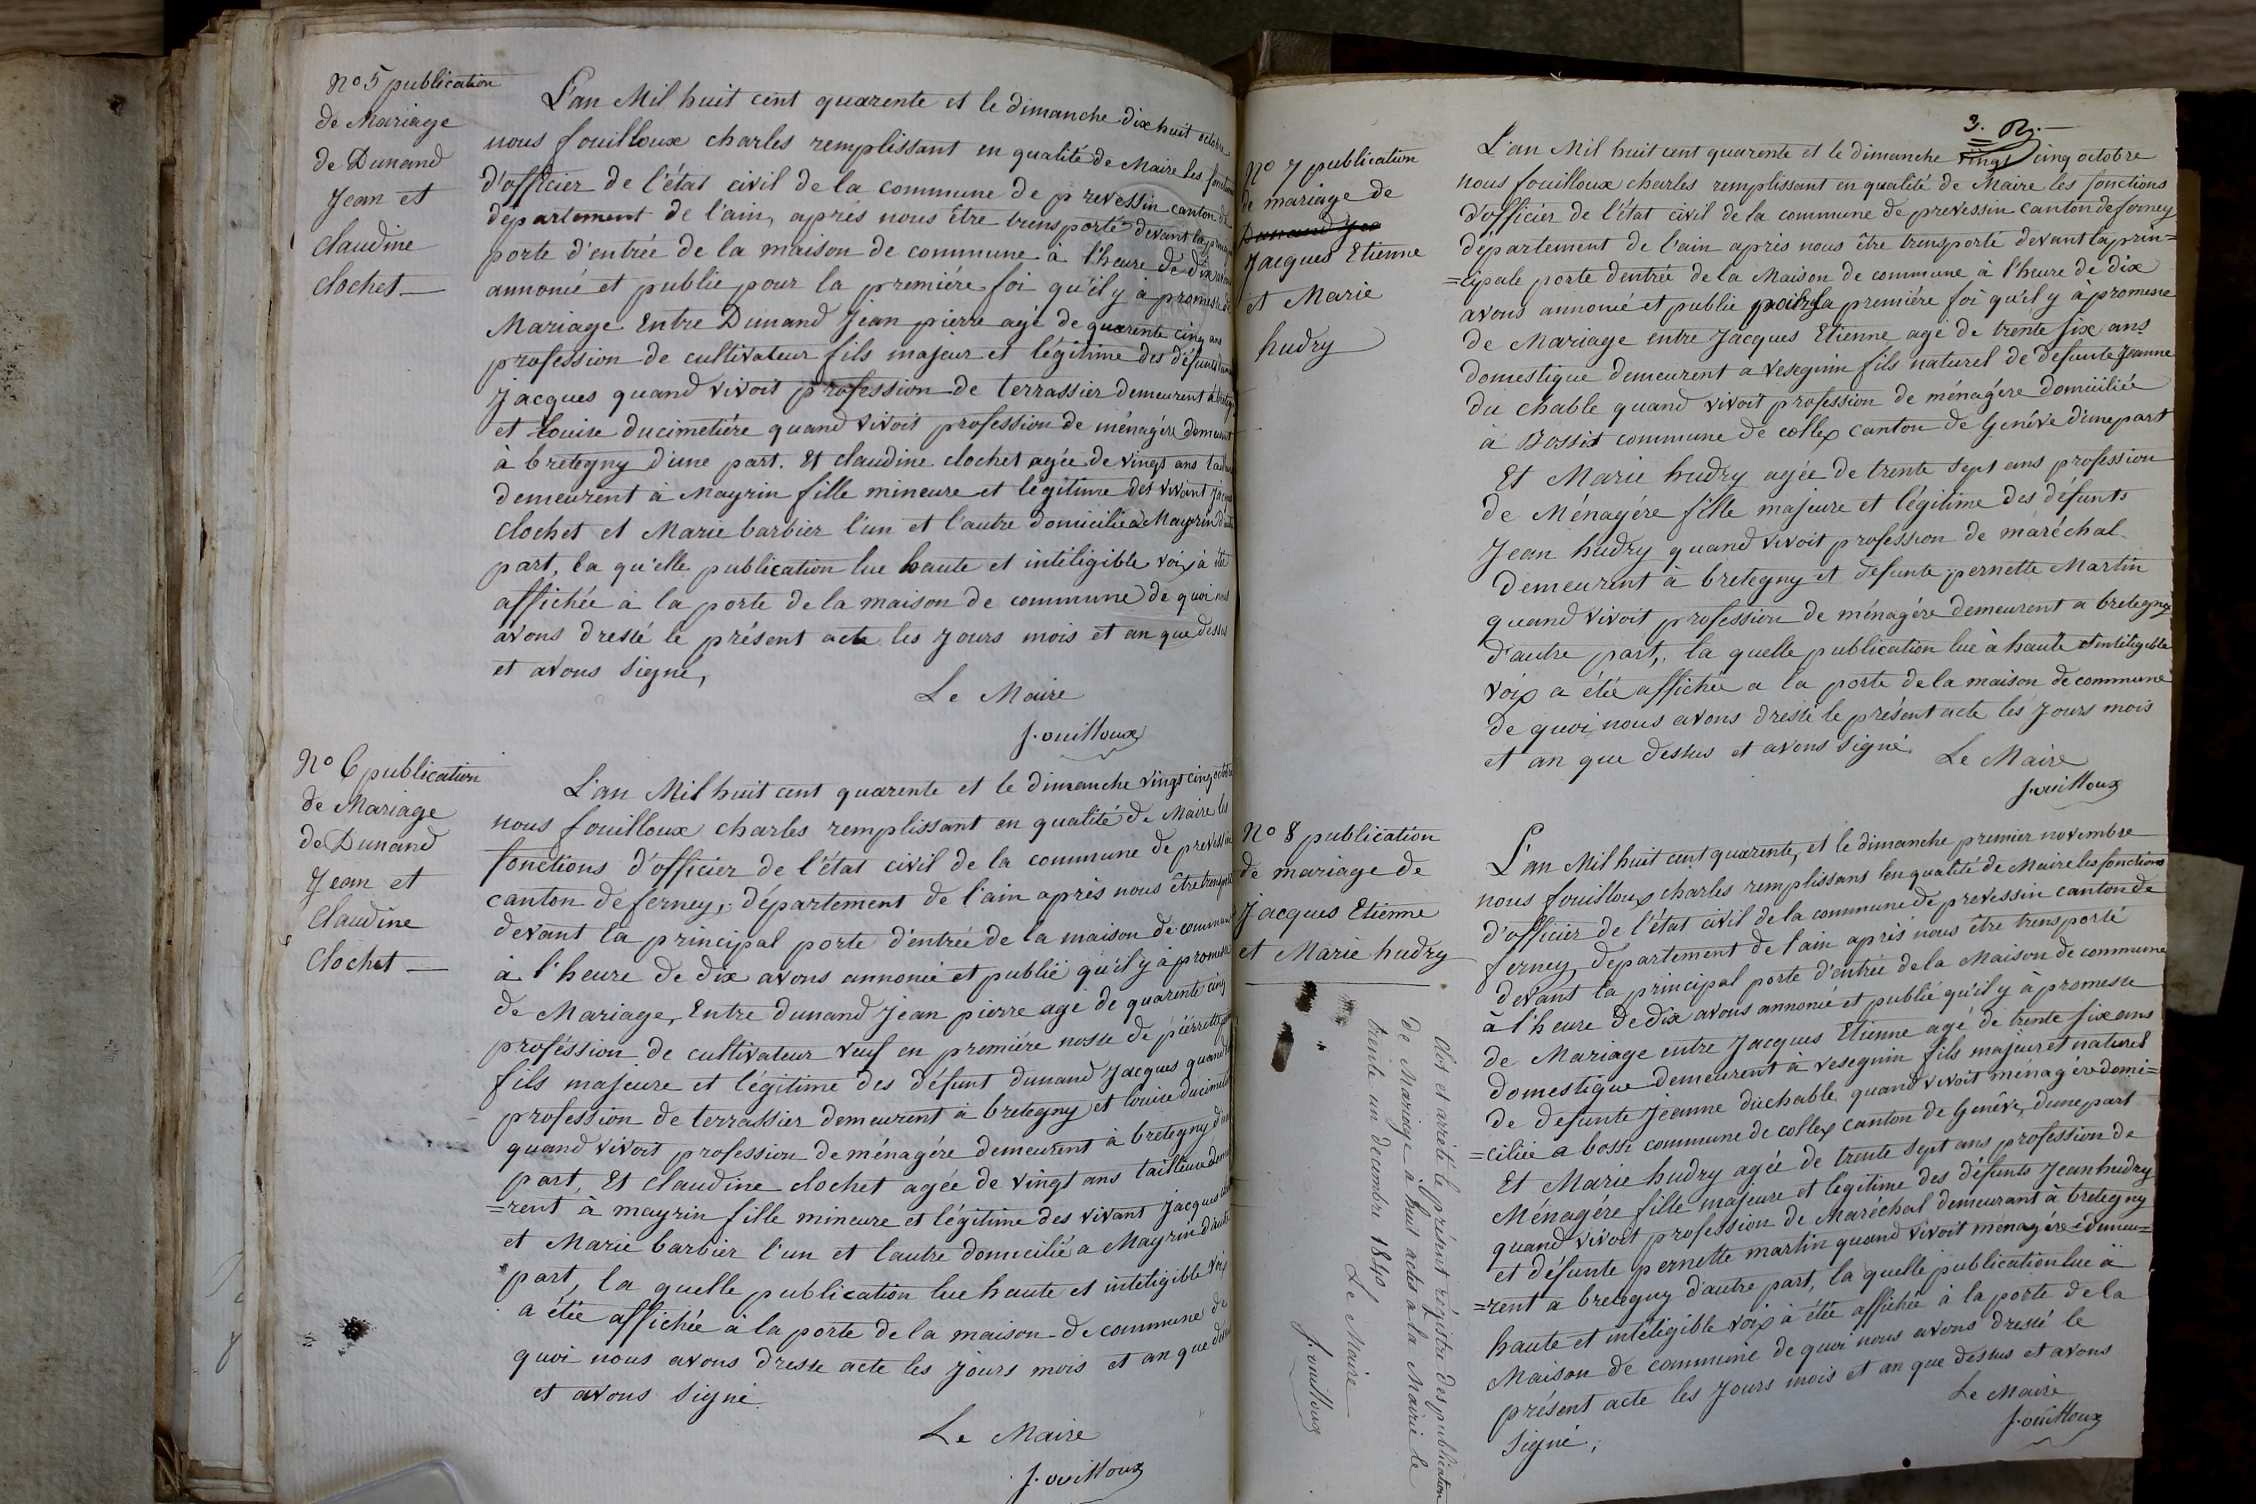 No 5 publication
de Mariage
de Dunand
Jean et
claudine
clochet
L'an Mil huit cent quarente et le dimanche dix huit octobre
nous fouilloux charles remplissant en qualité de Maire les fonctions
d'officier de l'état civil de la commune de prevessin canton de
département de l'ain, aprés nous être trensporté devant la
porte d'entrée de la maison de commune à l'heure de dix
annonié et publié pour la premiére foi qu'il y à promesse de
Mariage Entre Dunand Jean pierre agé de quarente cinq ans
profession de cultivateur fils majeur et légitime des défunt
Jacques quand vivoit profession de terrassier demeurent à
et Louise ducimetiére quand vivoit profession de ménagére demeurent
à bretegny d'une part. Et claudine clochet agée de vingt ans
demeurent à Mayrin fille mineure et légitime des vivant
clochet et Marie barbier l'un et l'autre domicilié à Mayrin
part, la qu'elle publication lue haute et intéligible voix à été
affichée à la porte de la maison de commune de quoi nous
avons dressé le présent acte les jours mois et an que dessus
et avons signé,
Le Maire
fouilloux
No 6 publication
de Mariage
de Dunand
Jean et
Claudine
Clochet
L'an Mil huit cent quarente et le dimanche vingt cinq octobre
nous fouilloux charles remplissant en qualité de Maire les
fonctions d'officier de l'état civil de la commune de prevessin
canton de ferney, département de l'ain aprés nous être
devant la principal porte d'entrée de la maison de commune
à l'heure de dix avons annonié et publié qu'il y à promesse
de Mariage, Entre dunand Jean pierre agé de quarente cinq
proféssion de cultivateur veuf en premiére nosse de pierrette
fils majeure et légitime des défunt dunand Jacques quand
profession de terrassier demeurent à bretegny et louise
quand vivoit profession de ménagére demeurent à bretegny
part, Et claudine clochet agée de vingt ans tailleuse
=rent à mayrin fille mineure et légitime des vivant Jacques
et Marie barbier l'un et lautre domicilié a Mayrin
part, la quelle publication lue haute et intéligible voix
a étée affichée à la porte de la maison de commune de
quoi nous avons dresse acte les jours mois et an que
et avons signé
Le Maire
fouilloux
No 7 publication
de mariage de
Jacques Etienne
et Marie
hudry
3.
L'an Mil huit cent quarente et le dimanche vingt cinq octobre
nous fouilloux charles remplissant en qualité de Maire les fonctions
d'officier de l'état civil de la commune de prevessin canton de ferney
département de l'ain aprés nous être trensporté devant la prin=
=cipale porte dentrée de la Maison de commune à l'heure de dix
avons annonié et publié pour la premiére foi qu'il y à promesse
de Mariage entre Jacques Etienne agé de trente six ans
domestique demeurent a vesegnin fils naturel de defunte Jeanne
du chable quand vivoit profession de ménagére domiiliée
à Bossit commune de collex canton de Genéve d'une part
Et Marie hudry agée de trente sept ans profession
de Ménagére fille majeure et légitime des défunts
Jean hudry quand vivoit profession de maréchal
demeurent à bretegny et defunte pernette Martin
quand vivoit profession de ménagére demeurent a bretegny
d'autre part, la quelle publication lue à haute et intéligible
voix a étée affichée a la porte de la maison de commune
de quoi nous avons dressé le présent acte les jours mois
et an que dessus et avons signé
Le Maire
fouilloux
No 8 publication
de mariage de
Jacques Etienne
et Marie hudry
L'an Mil huit cent quarente, et le dimanche premier novembre
nous fouilloux charles remplissans en qualité de Maire les fonctions
d'officier de l'état civil de la commune de prevessin canton de
ferney, département de l'ain aprés nous être trensporté
devant la principal porte d'entrée de la Maison de commune
à l'heure de dix avons annonié et publié qu'il y à promesse
de Mariage entre Jacques Etienne agé de trente six ans
domestique demeurent à vesegnin fils majeur et naturel
de defunte Jeanne duchable quand vivoit ménagére domi=
=ciliée a bossi commune de collex canton de Genéve, d'une part
Et Marie hudry agée de trente sept ans profession de
Ménagére fille majeure et legitime des défunts Jean hudry
quand vivoit profession de Maréchal demeurant à bretegny
et défunte pernette martin quand vivoit ménagére demeu=
=rent a bretegny d'autre part, la quelle publication lue à
haute et intéligible voix à étée affichée à la porte de la
Maison de commune de quoi nous avons dressé le
présent acte les jours mois et an que dessus et avons
signé,
Le Maire
fouilloux
Clot et arreté le présent régistre des publication
de Mariage à huit actes a la Mairie le
trente un decembre 1840
Le Maire
fouilloux